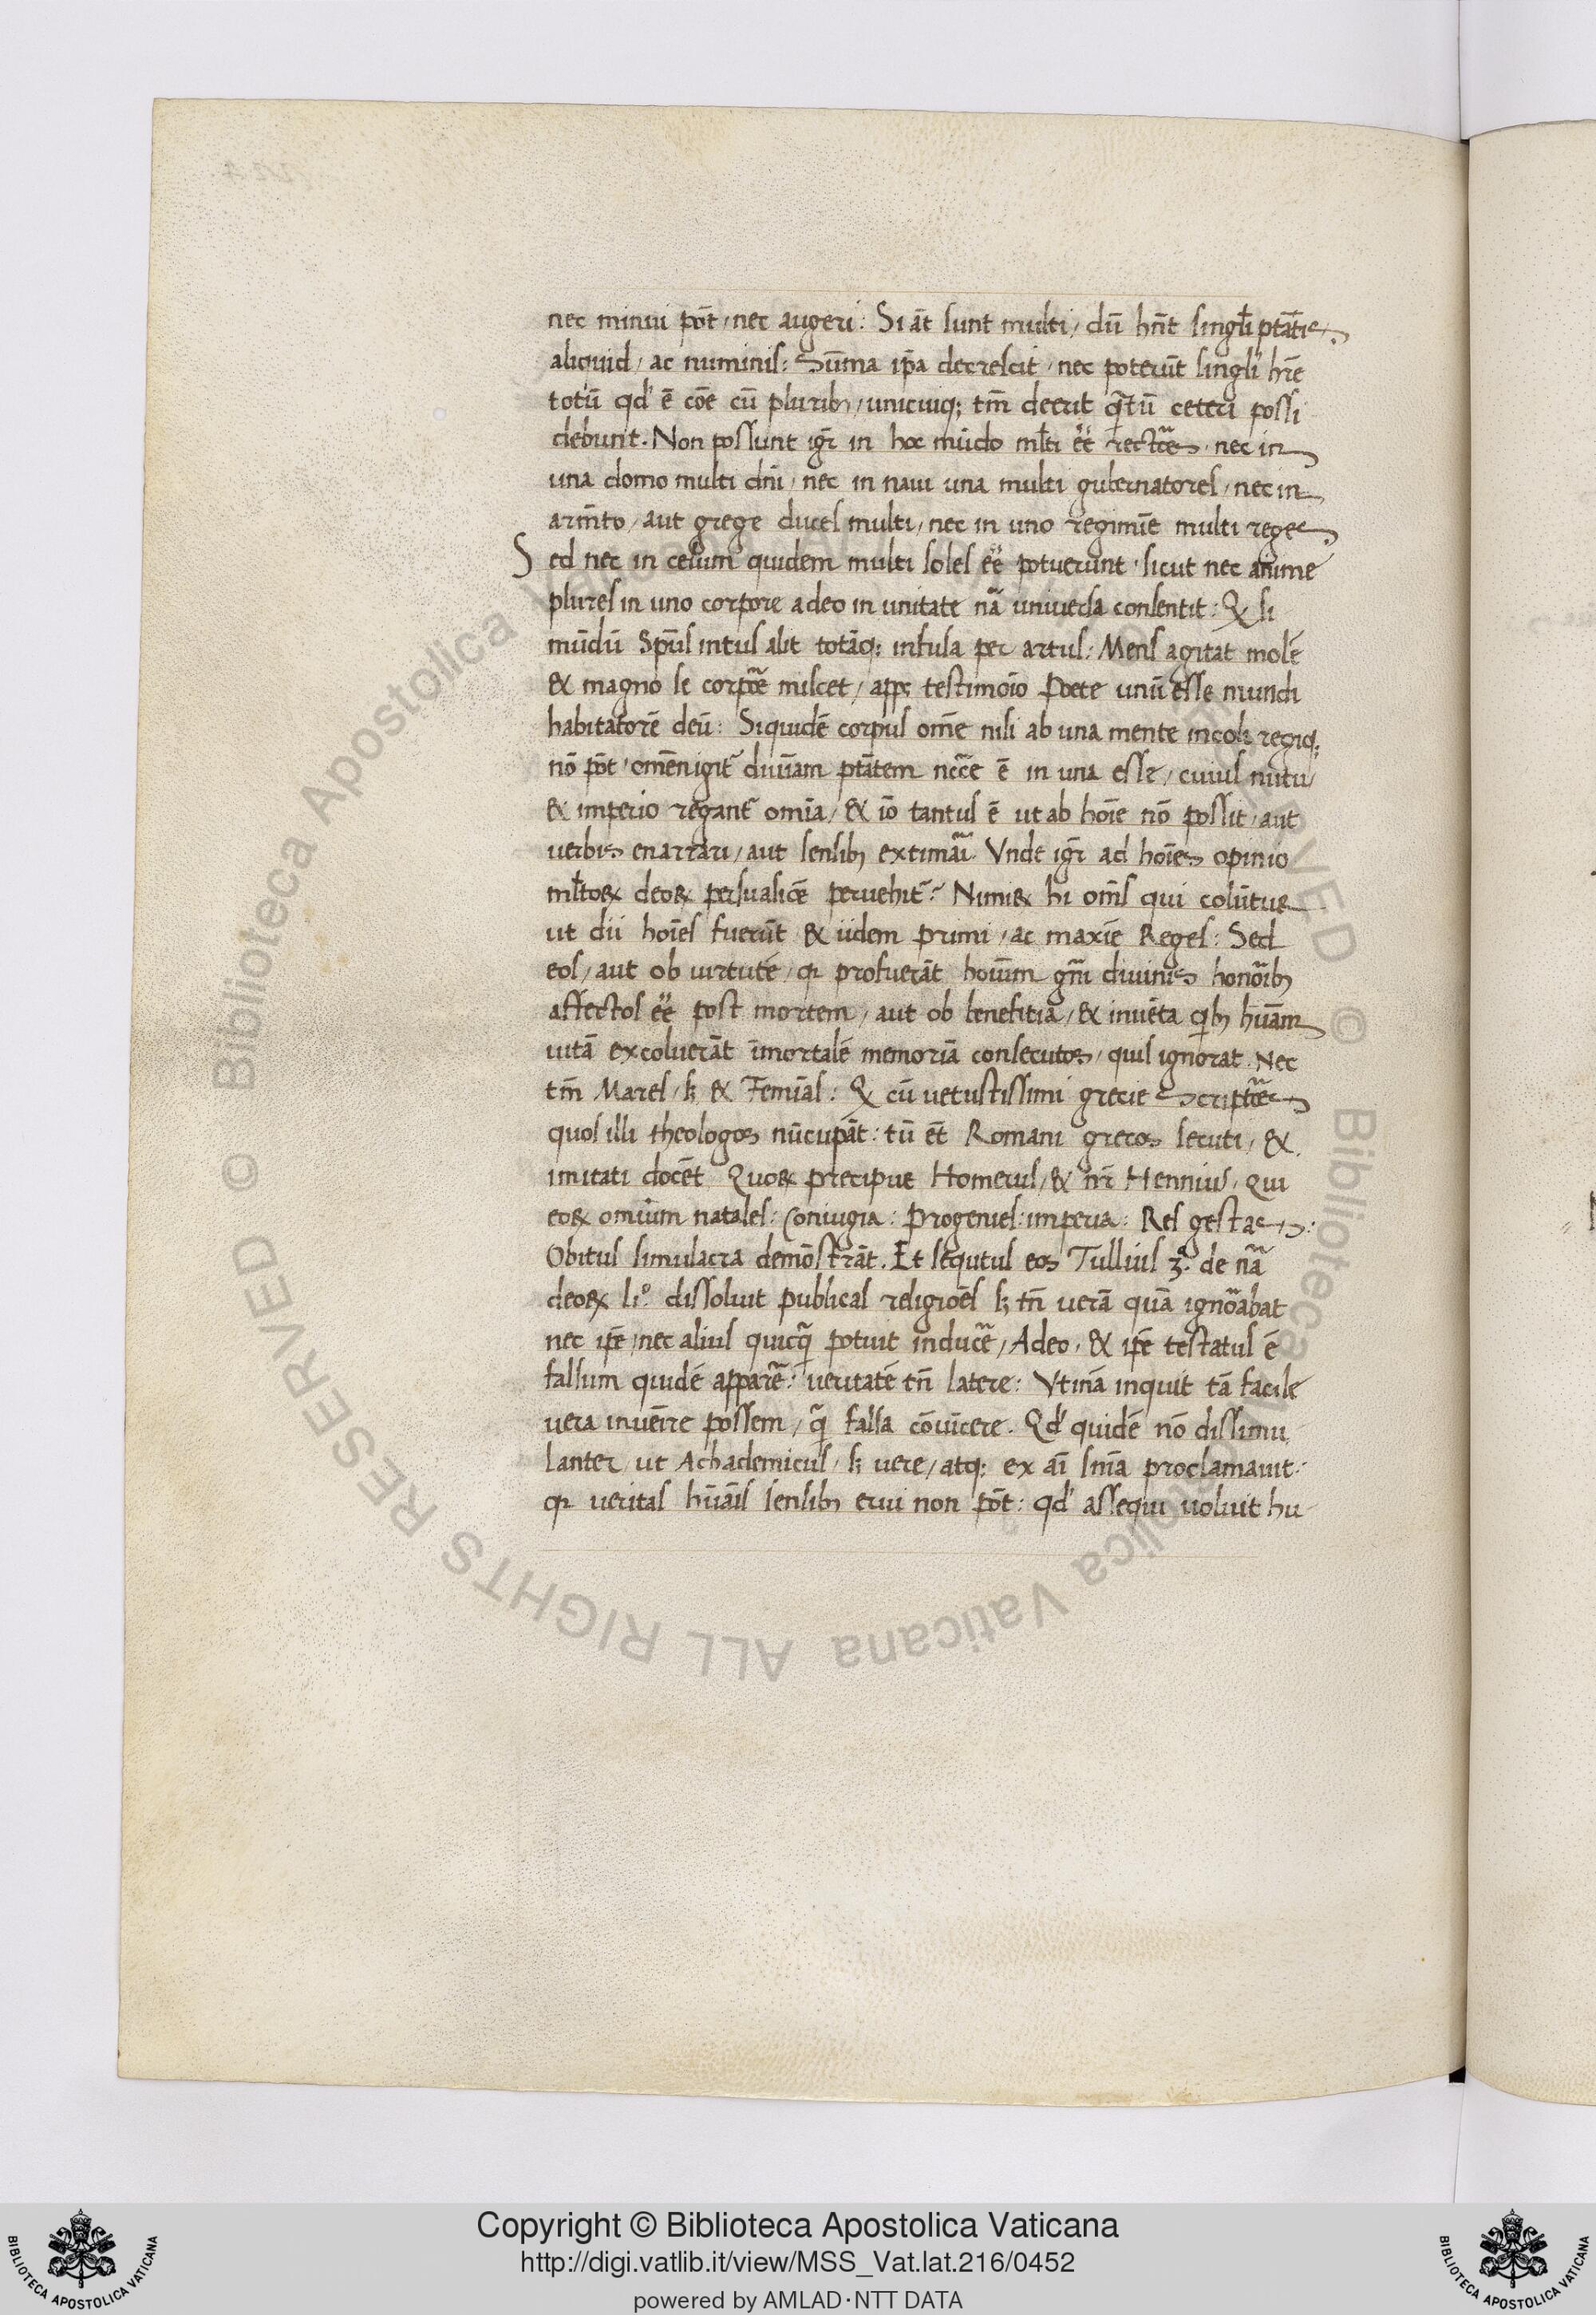 nec minui pōt / nec augeri: Si āt sunt multi / dū hn̄t singl̄i ptātis
aliquid / ac numinis: Sūma ip̄a decrescit / nec poterūt singl̄i hr̄e
totū qd' ē cōe cū plurib; / unicuiq; tm̄ deerit q̄tū ceteri possi
debunt. Non possunt igr̄ in hoc mūdo ml̄ti eē rectōres / nec in
una domo multi dn̄i / nec in naui una multi gubernatores / nec in
arm̄to / aut grege duces multi / nec in uno regimīe multi reges
Sed nec in celum quidem multi soles eē potuerunt / sicut nec anime
plures in uno corpore adeo in unitate nā uniuersa consentit: Q̄ si
mūdū Spūs intus alit totāq; infusa per artus: Mens agitat molē
& magno se corpōe miscet / appȝ testimoīo Poete unū esse mundi
habitatorē deū: Siquidē corpus om̄e nisi ab una mente incoli regiq;
nō pōt / omēn igit̄ diuīam ptātem necc̄e ē in una esse / cuius nutu /
& imperio regant̄ omīa / & iō tantus ē ut ab hoīe nō possit / aut
uerbis enarrari / aut sensib; extimāi. Vnde igr̄ ad hoīes opinio
ml̄toꝝ deoꝝ persuasiōe peruehit̄? Nimiꝝ hi om̄s qui colūtur
ut dii hoīes fuerūt & iidem primi / ac maxīe Reges: Sed
eos / aut ob uirtutē / qr profuerāt hoīum gn̄i diuinis honōib;
affectos eē post mortem / aut ob benefitia / & inuēta qib; hūam
uitā excoluerāt īmortalē memoriā consecutos / quis ignorat. Nec
tm̄ Mares / sȝ & Femīas: Q̄ cū uetustissimi grecie Scriptōes
quos illi theologos nūcupāt: tū ēt Romani grecos secuti / &
imitati docēt Quoꝝ precipue Homerus / & nr̄ Hennius / qui
eoꝝ omīum natales: Coniugia: Progenies: imperia: Res gestas:
Obitus simulacra demōstrāt. Et sequtus eos Tullius 3.º de nā
deoꝝ li.º dissoluit publicas religiōes sȝ tn̄ uerā quā ignōabat
nec ip̄e / nec alius quicq̄ potuit inducē / Adeo / & ip̄e testatus ē
falsum quidē apparē: ueritatē tn̄ latere: Vtinā inquit tā facile
uera inuēire possem / q̄ falsa cōuīcere. Qd' quidē nō dissimu
lanter / ut Achademicus / sȝ uere / atq; ex aī sn̄ia proclamauit:
qr ueritas hūaīs sensib; erui non pōt: qd' assequi uoluit hu-
© Biblioteca Apostolica Vaticana ALL RIGHTS RESERVED
Copyright © Biblioteca Apostolica Vaticana
http://digi.vatlib.it/view/MSS_Vat.lat.216/0452
powered by AMLAD·NTT DATA
BIBLIOTECA APOSTOLICA VATICANA
BIBLIOTECA APOSTOLICA VATICANA